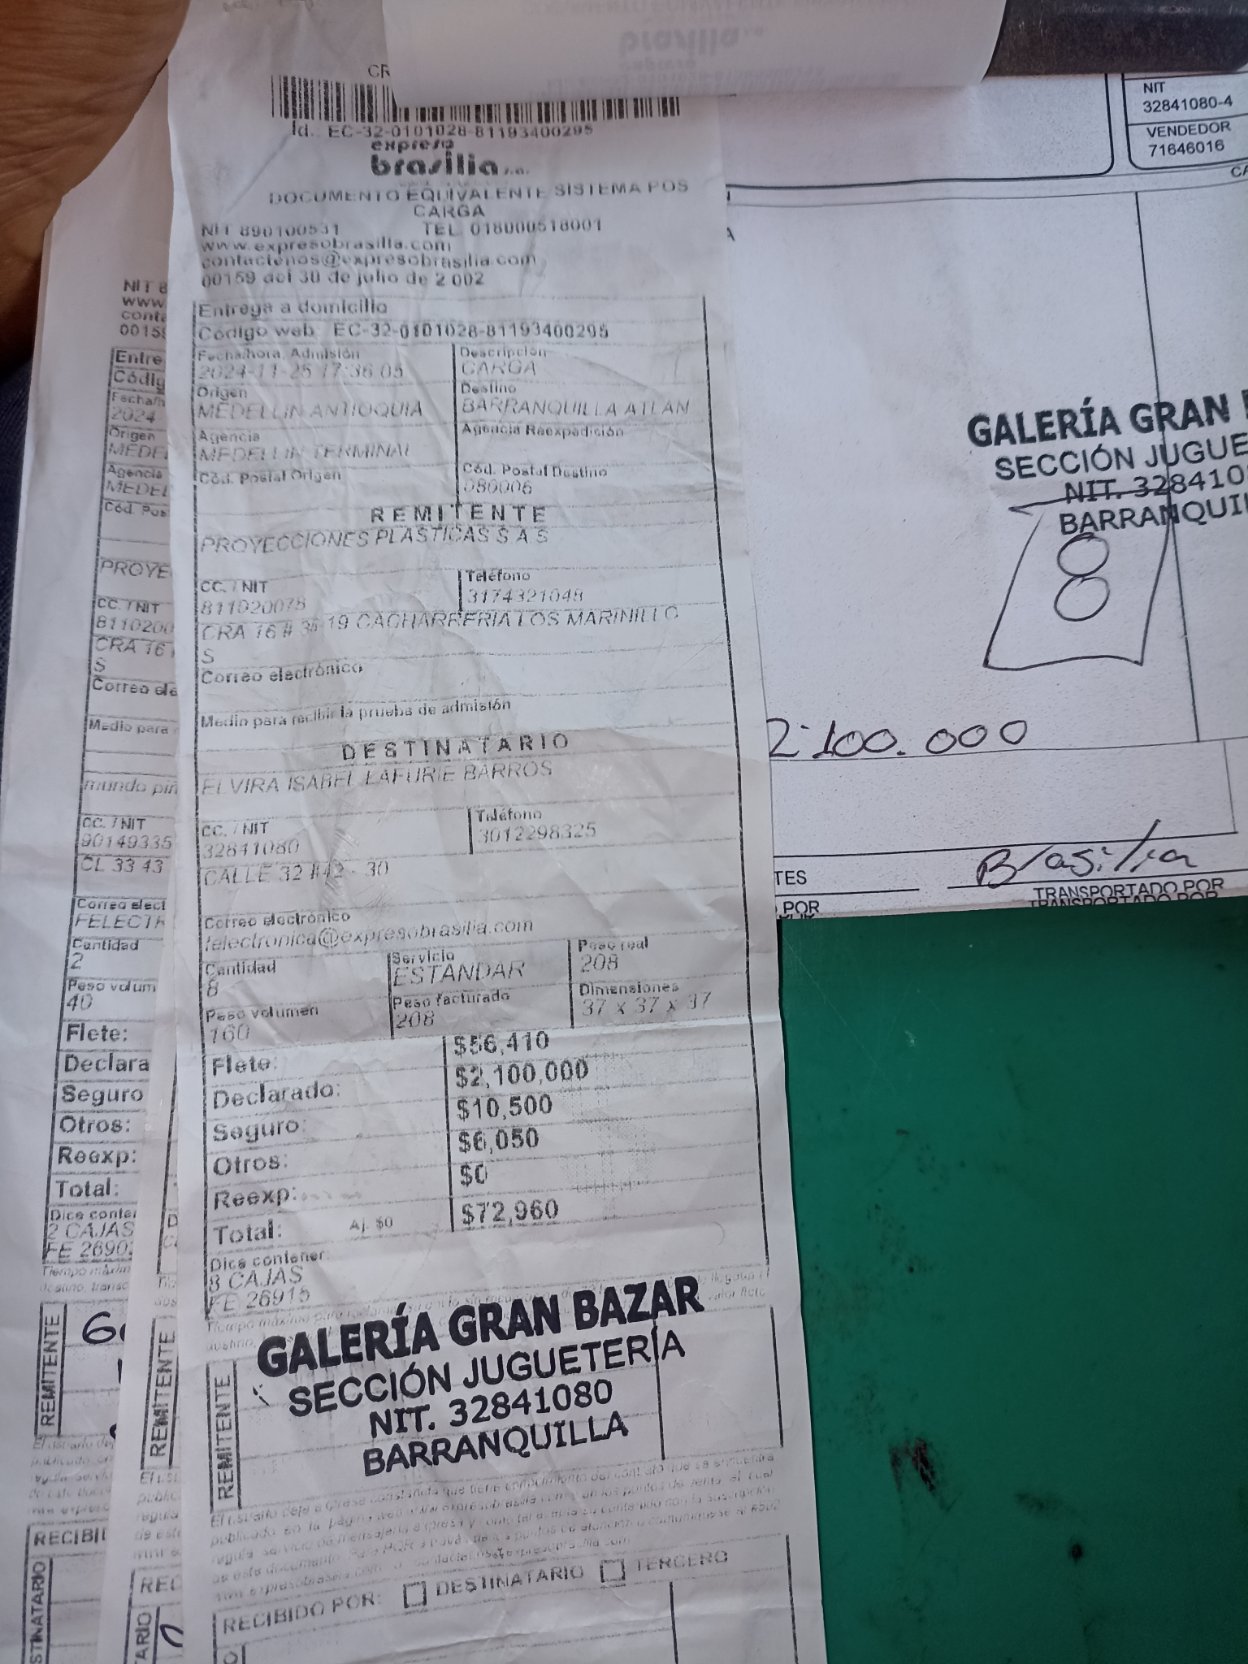 CR
Id.: EC-32-0101028-81193400295
expreso
brasilia s.a.
DOCUMENTO EQUIVALENTE SISTEMA POS
CARGA
NIT 890100531 TEL 018000518001
www.expresobrasilia.com
contactenos@expresobrasilia.com
00159 del 30 de julio de 2 002
Entrega a domicilio
Código web: EC-32-0101028-81193400295
Fecha/hora, Admisión Descripción
2024-11-25 17:36:05 CARGA
Origen Destino
MEDELLIN ANTIOQUIA BARRANQUILLA ATLAN
Agencia Agencia Reexpedición
MEDELLIN TERMINAL
Cód. Postal Origen Cód. Postal Destino
080006
REMITENTE
PROYECCIONES PLASTICAS S A S
CC. / NIT Teléfono
811020078 3174321048
CRA 16 # 35-19 CACHARRERIA LOS MARINILLO
S
Correo electrónico
Medio para recibir la prueba de admisión
DESTINATARIO
ELVIRA ISABEL LAFURIE BARROS
CC. / NIT Teléfono
32841080 3012298325
CALLE 32 #42 - 30
Correo electrónico
felectronica@expresobrasilia.com
Cantidad Servicio Peso real
8 ESTANDAR 208
Peso volumen Peso facturado Dimensiones
160 208 37 x 37 x 37
Flete: $56,410
Declarado: $2,100,000
Seguro: $10,500
Otros: $6,050
Reexp: $0
Total: Aj. $0 $72,960
Dice contener:
8 CAJAS
FE 26915
GALERÍA GRAN BAZAR
SECCIÓN JUGUETERÍA
NIT. 32841080
BARRANQUILLA
REMITENTE
RECIBIDO POR: DESTINATARIO TERCERO
NIT
32841080-4
VENDEDOR
71646016
GALERÍA GRAN
SECCIÓN JUGUE
NIT. 328410
BARRANQUI
8
2.100.000
Brasilia
TES
POR
TRANSPORTADO POR
NIT 8
www
conta
0015
Entre
Códig
Fecha/h
2024
Origen
MEDE
Agencia
MEDEL
Cód. Pos
PROYE
CC. / NIT
8110200
CRA 16
S
Correo ele
Medio para
mundo pin
CC. / NIT
90149335
CL 33 43
Correo elect
FELECTR
Cantidad
2
Peso volum
40
Flete:
Declara
Seguro
Otros:
Reexp:
Total:
Dice conte
2 CAJAS
FE 2690
REMITENTE
REMITENTE
RECIBI
REC